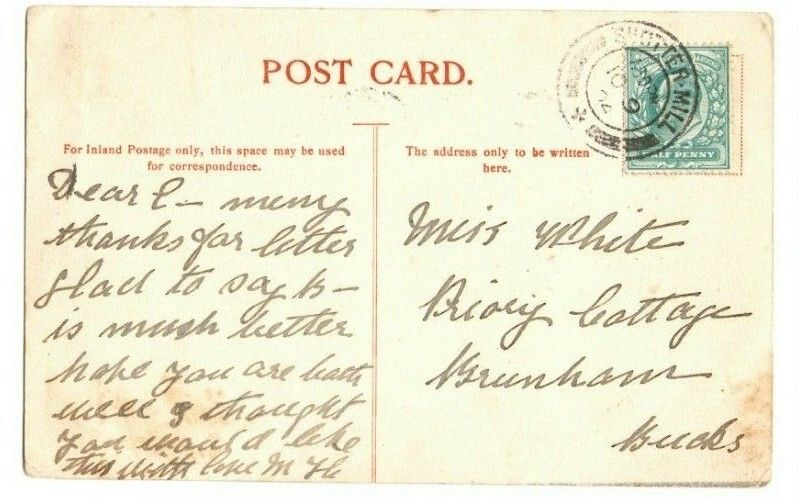 POST CARD.
For Inland Postage only, this space may be used
for correspondence.
The address only to be written
here.
SHOTTER-MILL
HALF PENNY
Dear E – many
thanks for letter
glad to say B –
is much better
hope you are both
well & thought
you would like
this with love M
Miss White
Priory Cottage
Burnham
Bucks